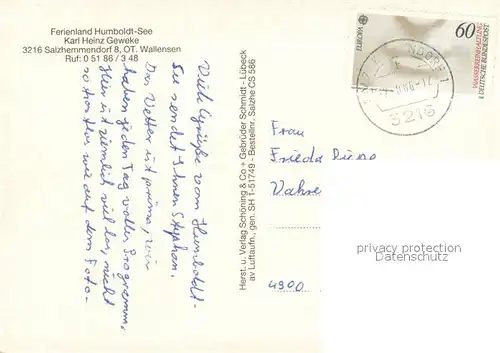 Ferienland Humboldt-See
Karl Heinz Geweke
3216 Salzhemmendorf 8, OT. Wallensen
Ruf: 0 51 86 / 3 48
Viele Grüße vom Humboldt-
See sendet Ihnen Stephan.
Das Wetter ist prima, wir
haben jeden Tag volles Programm.
Hier ist ziemlich viel los, nicht
so trostlos wie auf dem Foto-
Herst. u. Verlag Schöning & Co + Gebrüder Schmidt - Lübeck
av Luftaufn., gen. SH 1-51749 - Bestellnr. Salzhe CS 586
EUROPA
60
DEUTSCHE BUNDESPOST
3216
Frau
Frieda
Vahre
4900
privacy protection
Datenschutz